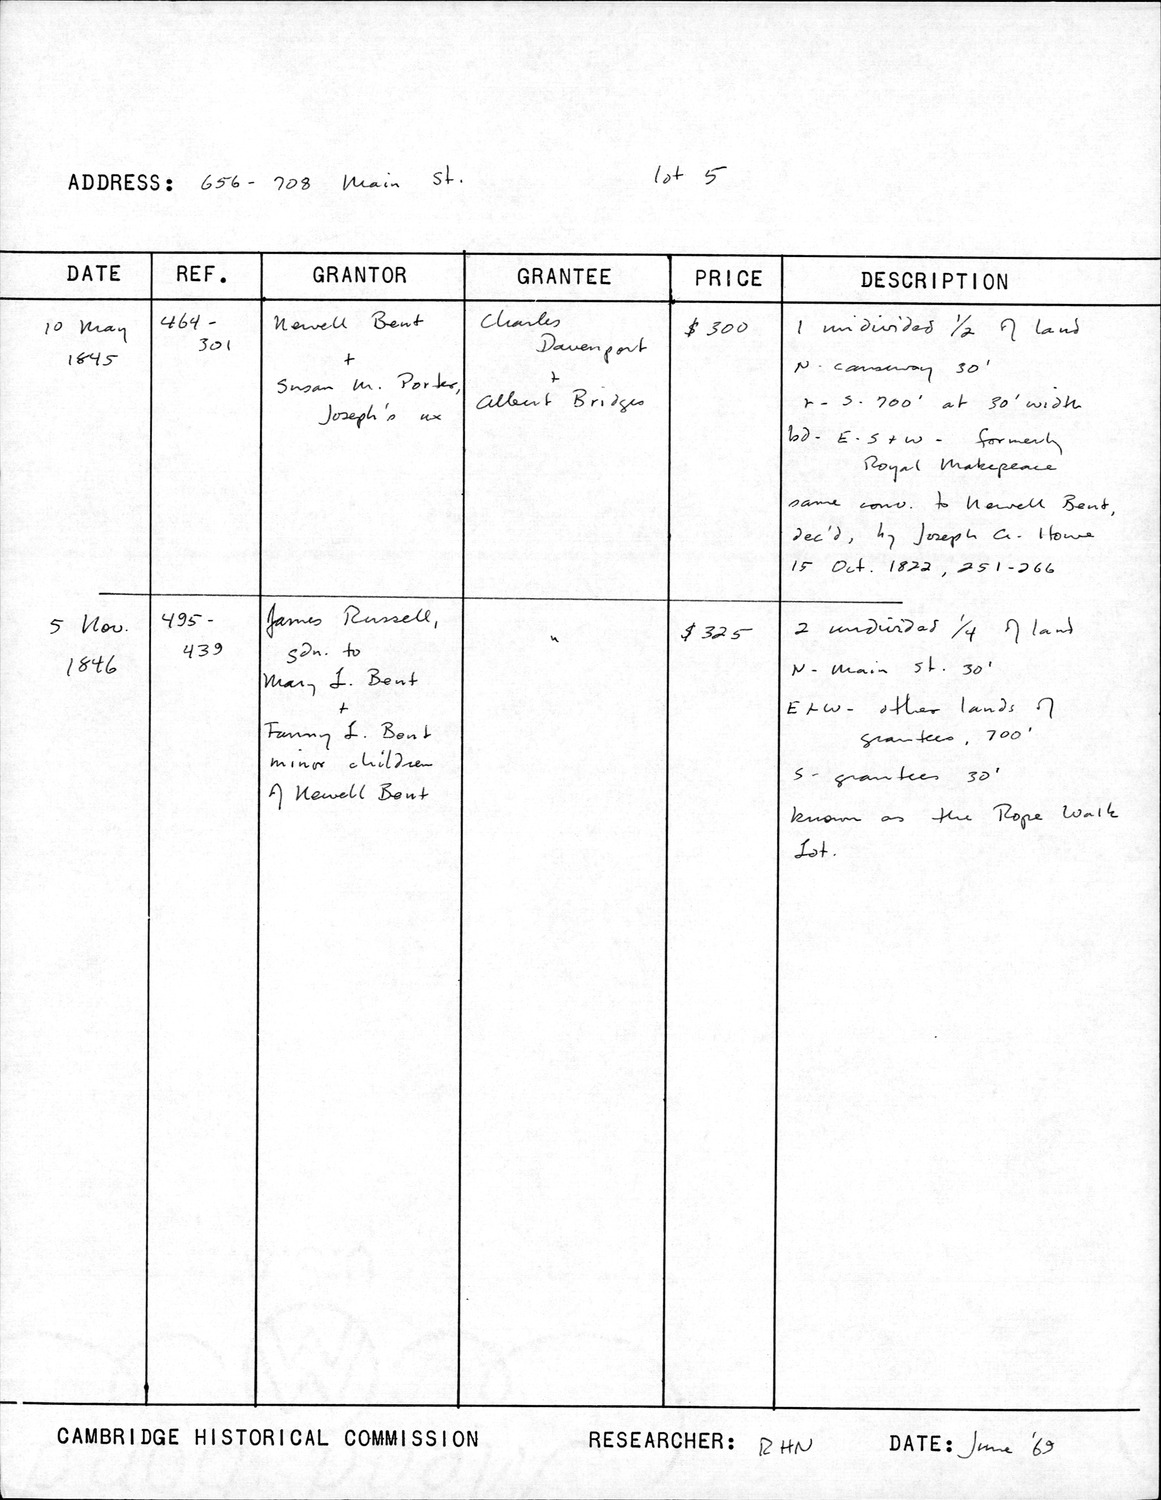 ADDRESS: 656-708 Main St. lot 5
DATE REF. GRANTOR GRANTEE PRICE DESCRIPTION
10 May
1845
464-
301
Newell Bent
+
Susan M. Porter,
Joseph's ux
Charles
Davenport
+
Albert Bridges
$300
1 undivided 1/2 of land
N. causeway 30'
r- S. 700' at 30' width
bd- E. S + W - formerly
Royal Makepeace
same conv. to Newell Bent,
dec'd, by Joseph G. Howe
15 Oct. 1822, 251-266
5 Nov.
1846
495-
439
James Russell,
gdn. to
Mary L. Bent
+
Fanny L. Bent
minor children
of Newell Bent
"
$325
2 undivided 1/4 of land
N- Main St. 30'
E+W- other lands of
grantees, 700'
S- grantees 30'
known as the Rope Walk
Lot.
CAMBRIDGE HISTORICAL COMMISSION RESEARCHER: RHN DATE: June '69